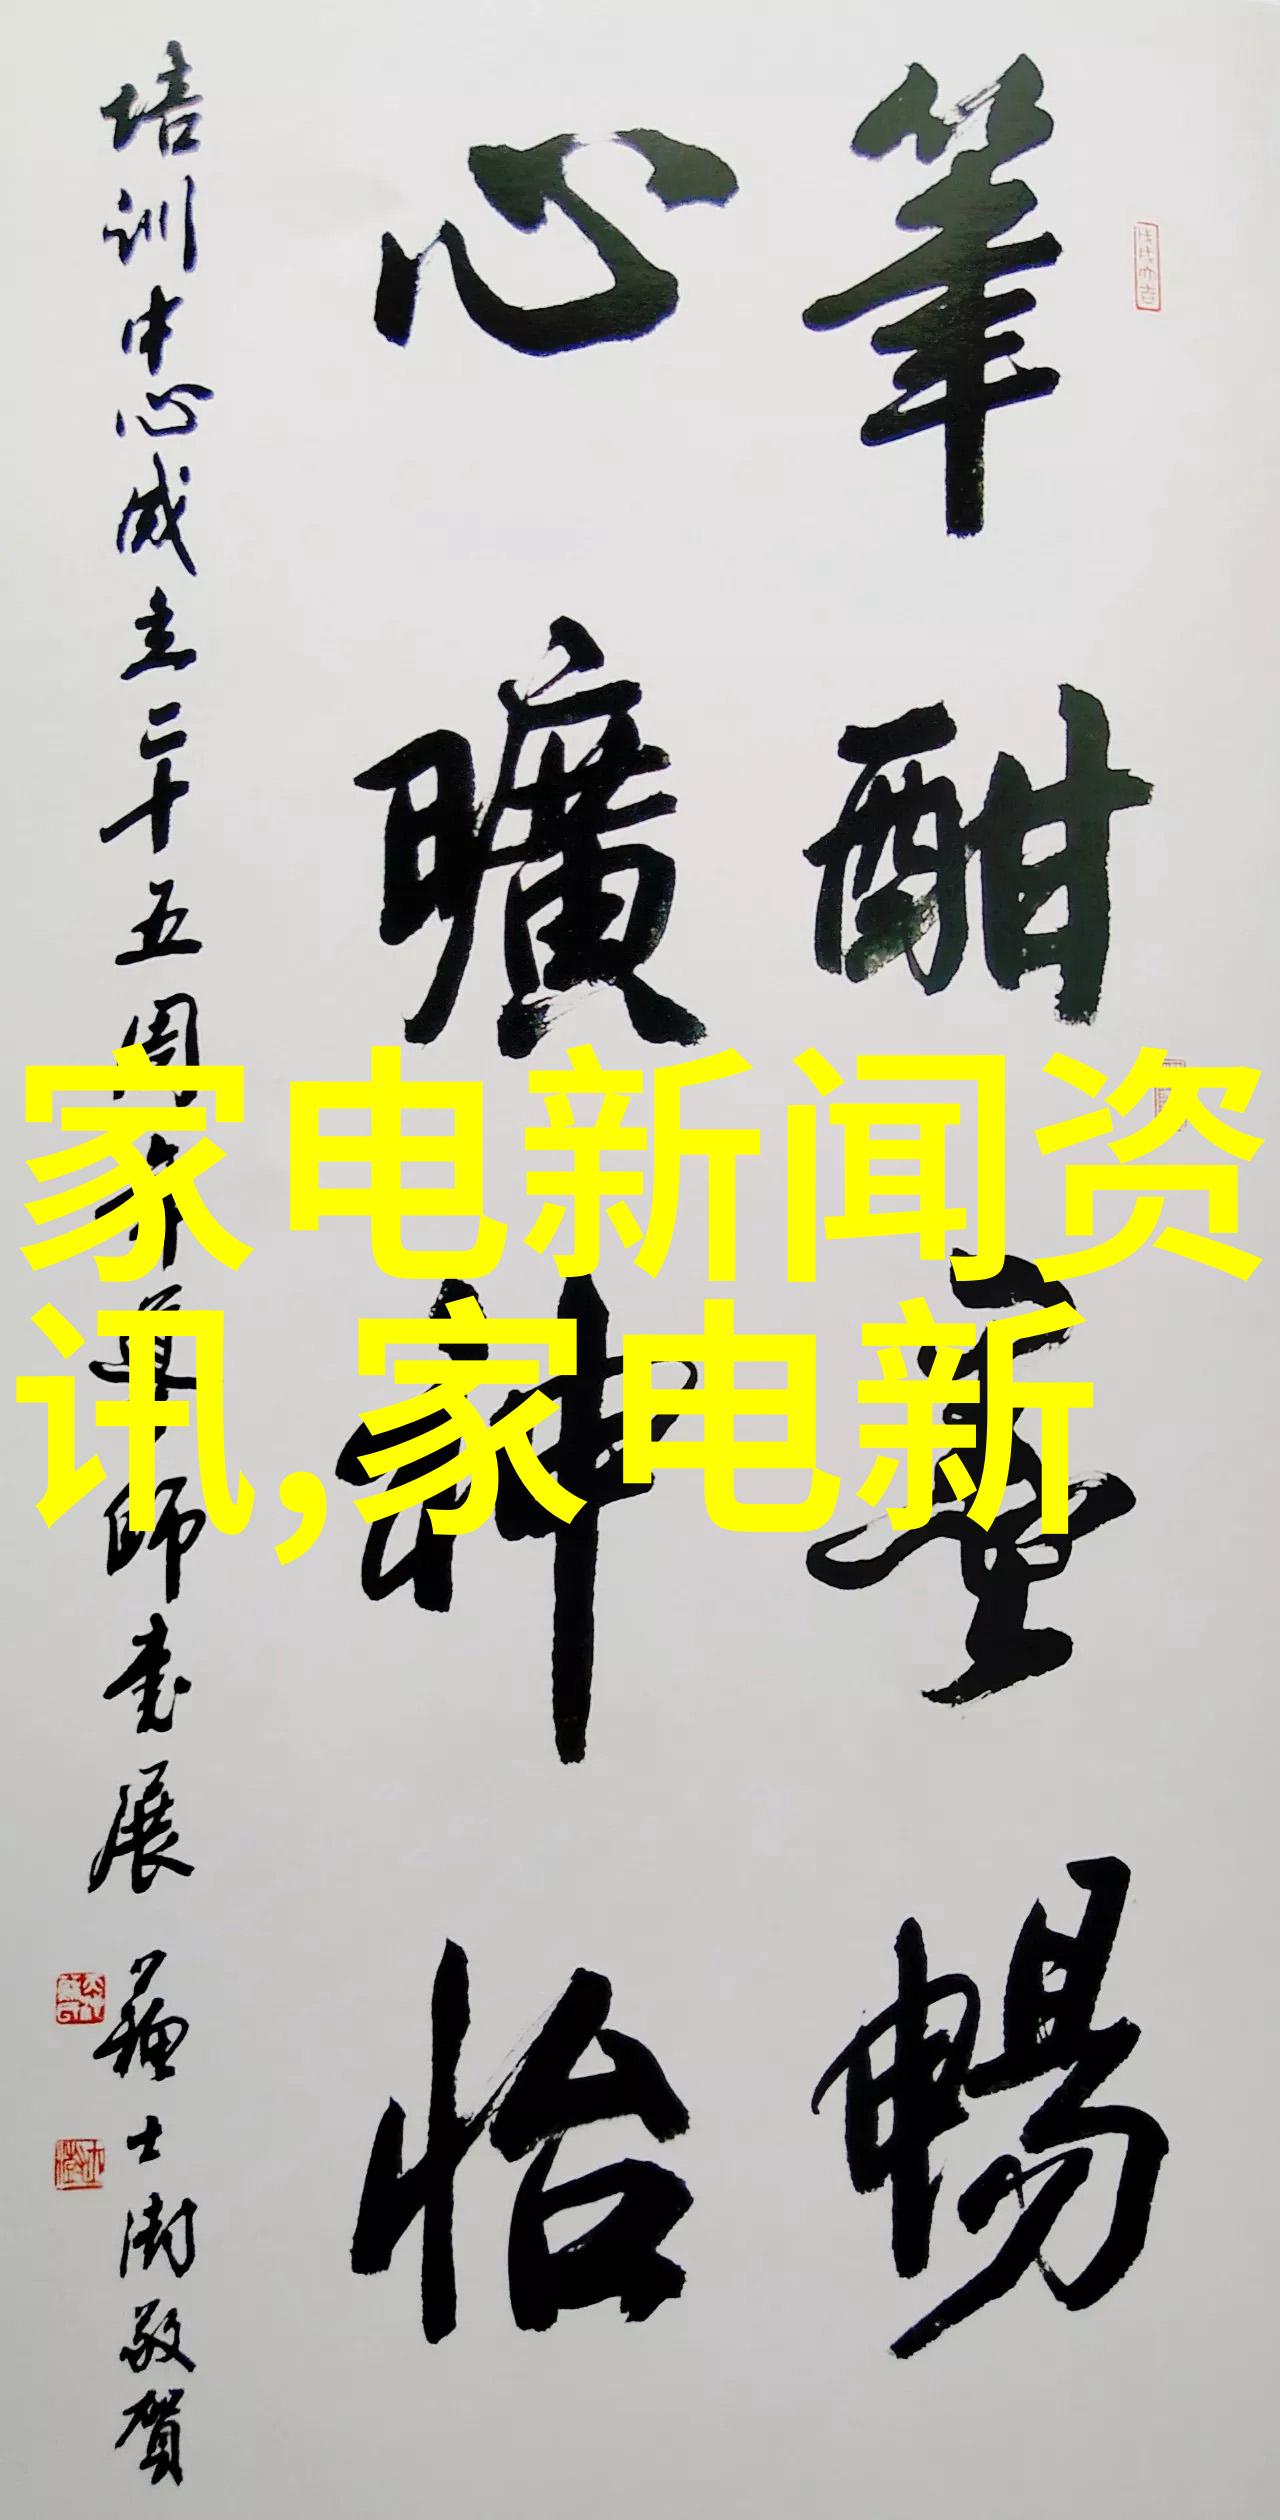 筆酣墨暢
心曠神怡
培训中心成立二十五周年導師书展 蘇士澍敬賀
家电新闻资
讯,家电新